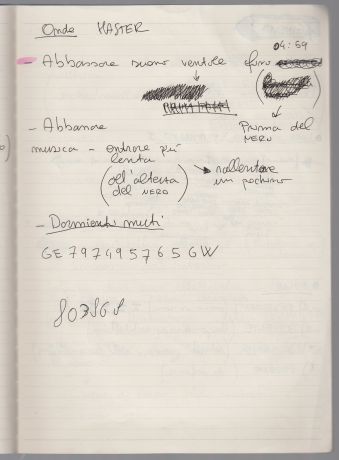 Onde MASTER
04:59
Abbassare suono ventole fino
Prima del
NERO
- Abbassare
musica - entrare più
lenta
(all'altezza
del NERO)
rallentare
un pochino
- Dormienti muti
GE797495765GW